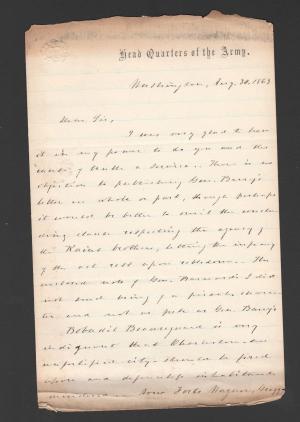 Head Quarters of the Army.
Washington, Aug. 30, 1863
Dear Sir,
I was very glad to have
it in my power to do you and the
country a service. There is no
objection to publishing Gen. Barry's
letter in whole or part, though perhaps
it would be better to omit the
clause respecting the agency of
the brothers, letting the
of the act rest upon. The
note of Gen. Barnard's I did
not send being of a private
and not as full as Gen. Barry's
Beauregard is very
indignant that Charleston an
unfortified city should be fired
upon and defenceless inhabitants
murdered. Now Forts Wagner, Gregg